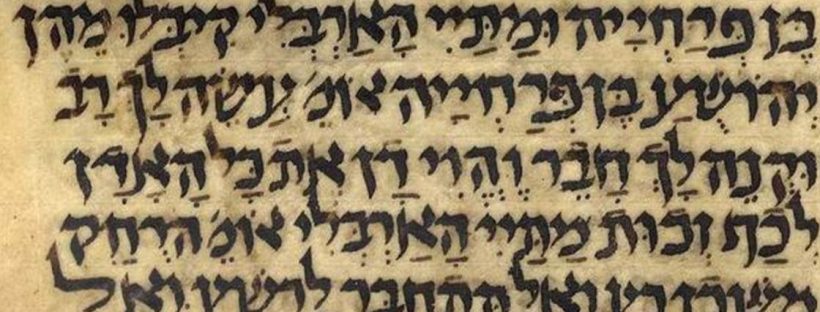 בֶּן פְּרַחְיָיה וּמַתַּיי הָאַרְבֵּלִי קִיבְּלוּ מֵהֶן
יְהוֹשֻׁעַ בֶּן פְּרַחְיָיה אומ׳ עֲשֵׂה לָךְ רַב
וּקְנֵה לָךְ חָבֵר וֶהֱוִי דָן אֶת כָּל הָאָדָן
לְכַף זְכוּת מַתַּיי הָאַרְבֵּלִי אומ׳ הַרְחֵק
רע ואל תתחבר לרשע ואל